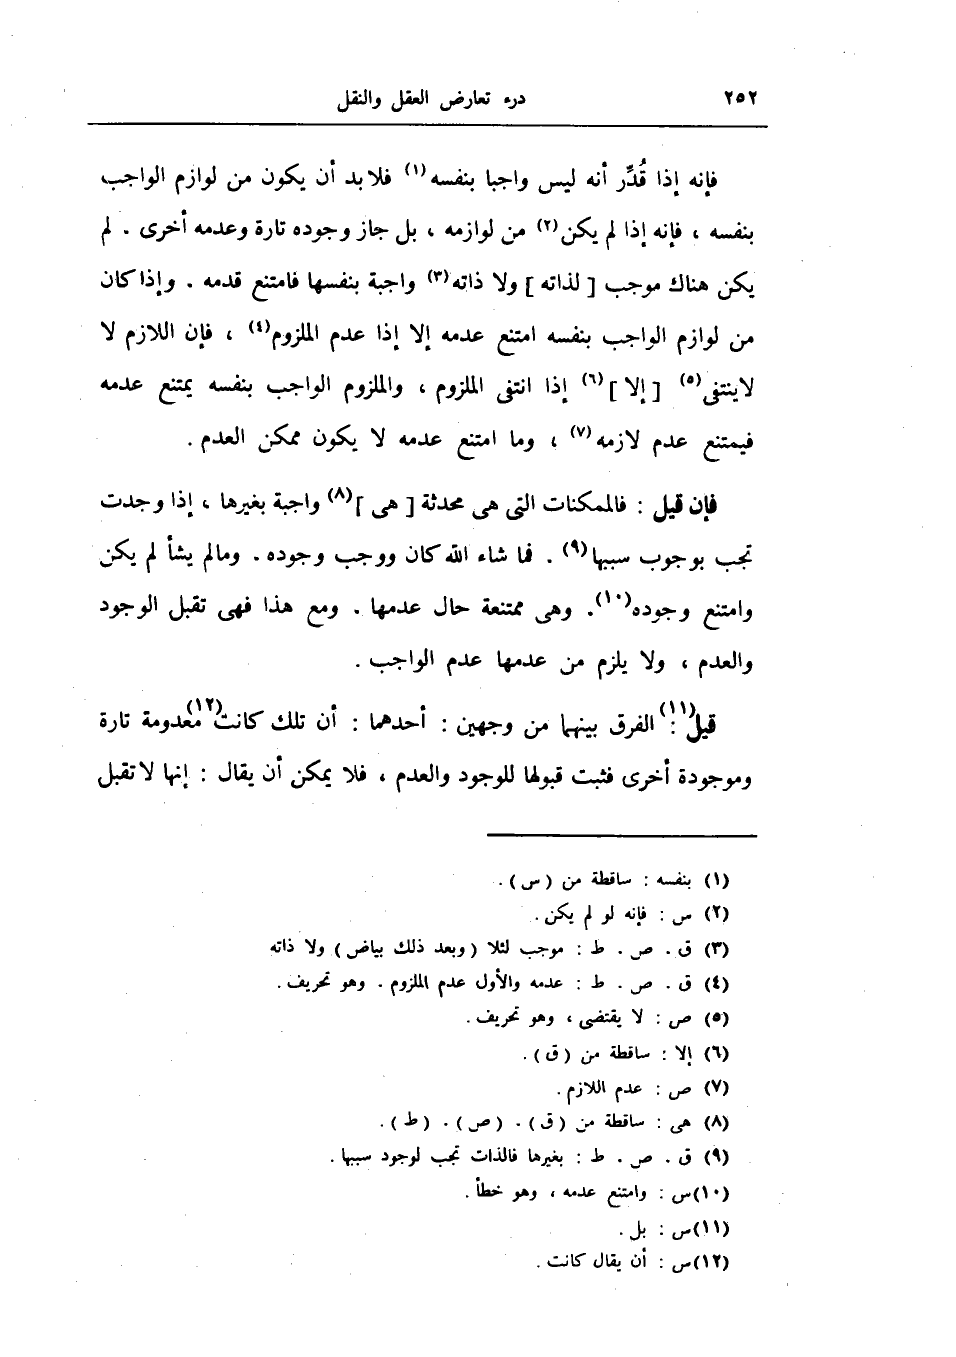 ٢٥٢ درء تعارض العقل والنقل
فإنه إذا قُدِّر أنه ليس واجبا بنفسه(١) فلابد أن يكون من لوازم الواجب
بنفسه ، فإنه إذا لم يكن(٢) من لوازمه ، بل جاز وجوده تارة وعدمه أخرى . لم
يكن هناك موجب [ لذاته ] ولا ذاته(٣) واجبة بنفسها فامتنع قدمه . وإذا كان
من لوازم الواجب بنفسه امتنع عدمه إلا إذا عدم الملزوم(٤) ، فإن اللازم لا
لاينتفى(٥) [ إلا ](٦) إذا انتفى الملزوم ، والملزوم الواجب بنفسه يمتنع عدمه
فيمتنع عدم لازمه(٧) ، وما امتنع عدمه لا يكون ممكن العدم .
فإن قيل : فالممكنات التى هى محدثة [ هى ](٨) واجبة بغيرها ، إذا وجدت
تجب بوجوب سببها(٩) . فما شاء الله كان ووجب وجوده . ومالم يشأ لم يكن
وامتنع وجوده(١٠). وهى ممتنعة حال عدمها . ومع هذا فهى تقبل الوجود
والعدم ، ولا يلزم من عدمها عدم الواجب .
قيل(١١) : الفرق بينهما من وجهين : أحدهما : أن تلك كانت(١٢) معدومة تارة
وموجودة أخرى فثبت قبولها للوجود والعدم ، فلا يمكن أن يقال : إنها لا تقبل
(١) بنفسه : ساقطة من ( س ) .
(٢) س : فإنه لو لم يكن .
(٣) ق . ص . ط : موجب لثلا ( وبعد ذلك بياض ) ولا ذاته
(٤) ق . ص . ط : عدمه والأول عدم الملزوم . وهو تحريف .
(٥) ص : لا يقتضى ، وهو تحريف .
(٦) إلا : ساقطة من ( ق ) .
(٧) ص : عدم اللازم .
(٨) هى : ساقطة من ( ق ) . ( ص ) . ( ط ) .
(٩) ق . ص . ط : بغيرها فالذات تجب لوجود سببها .
(١٠) س : وامتنع عدمه ، وهو خطأ .
(١١) س : بل .
(١٢) س : أن يقال كانت .